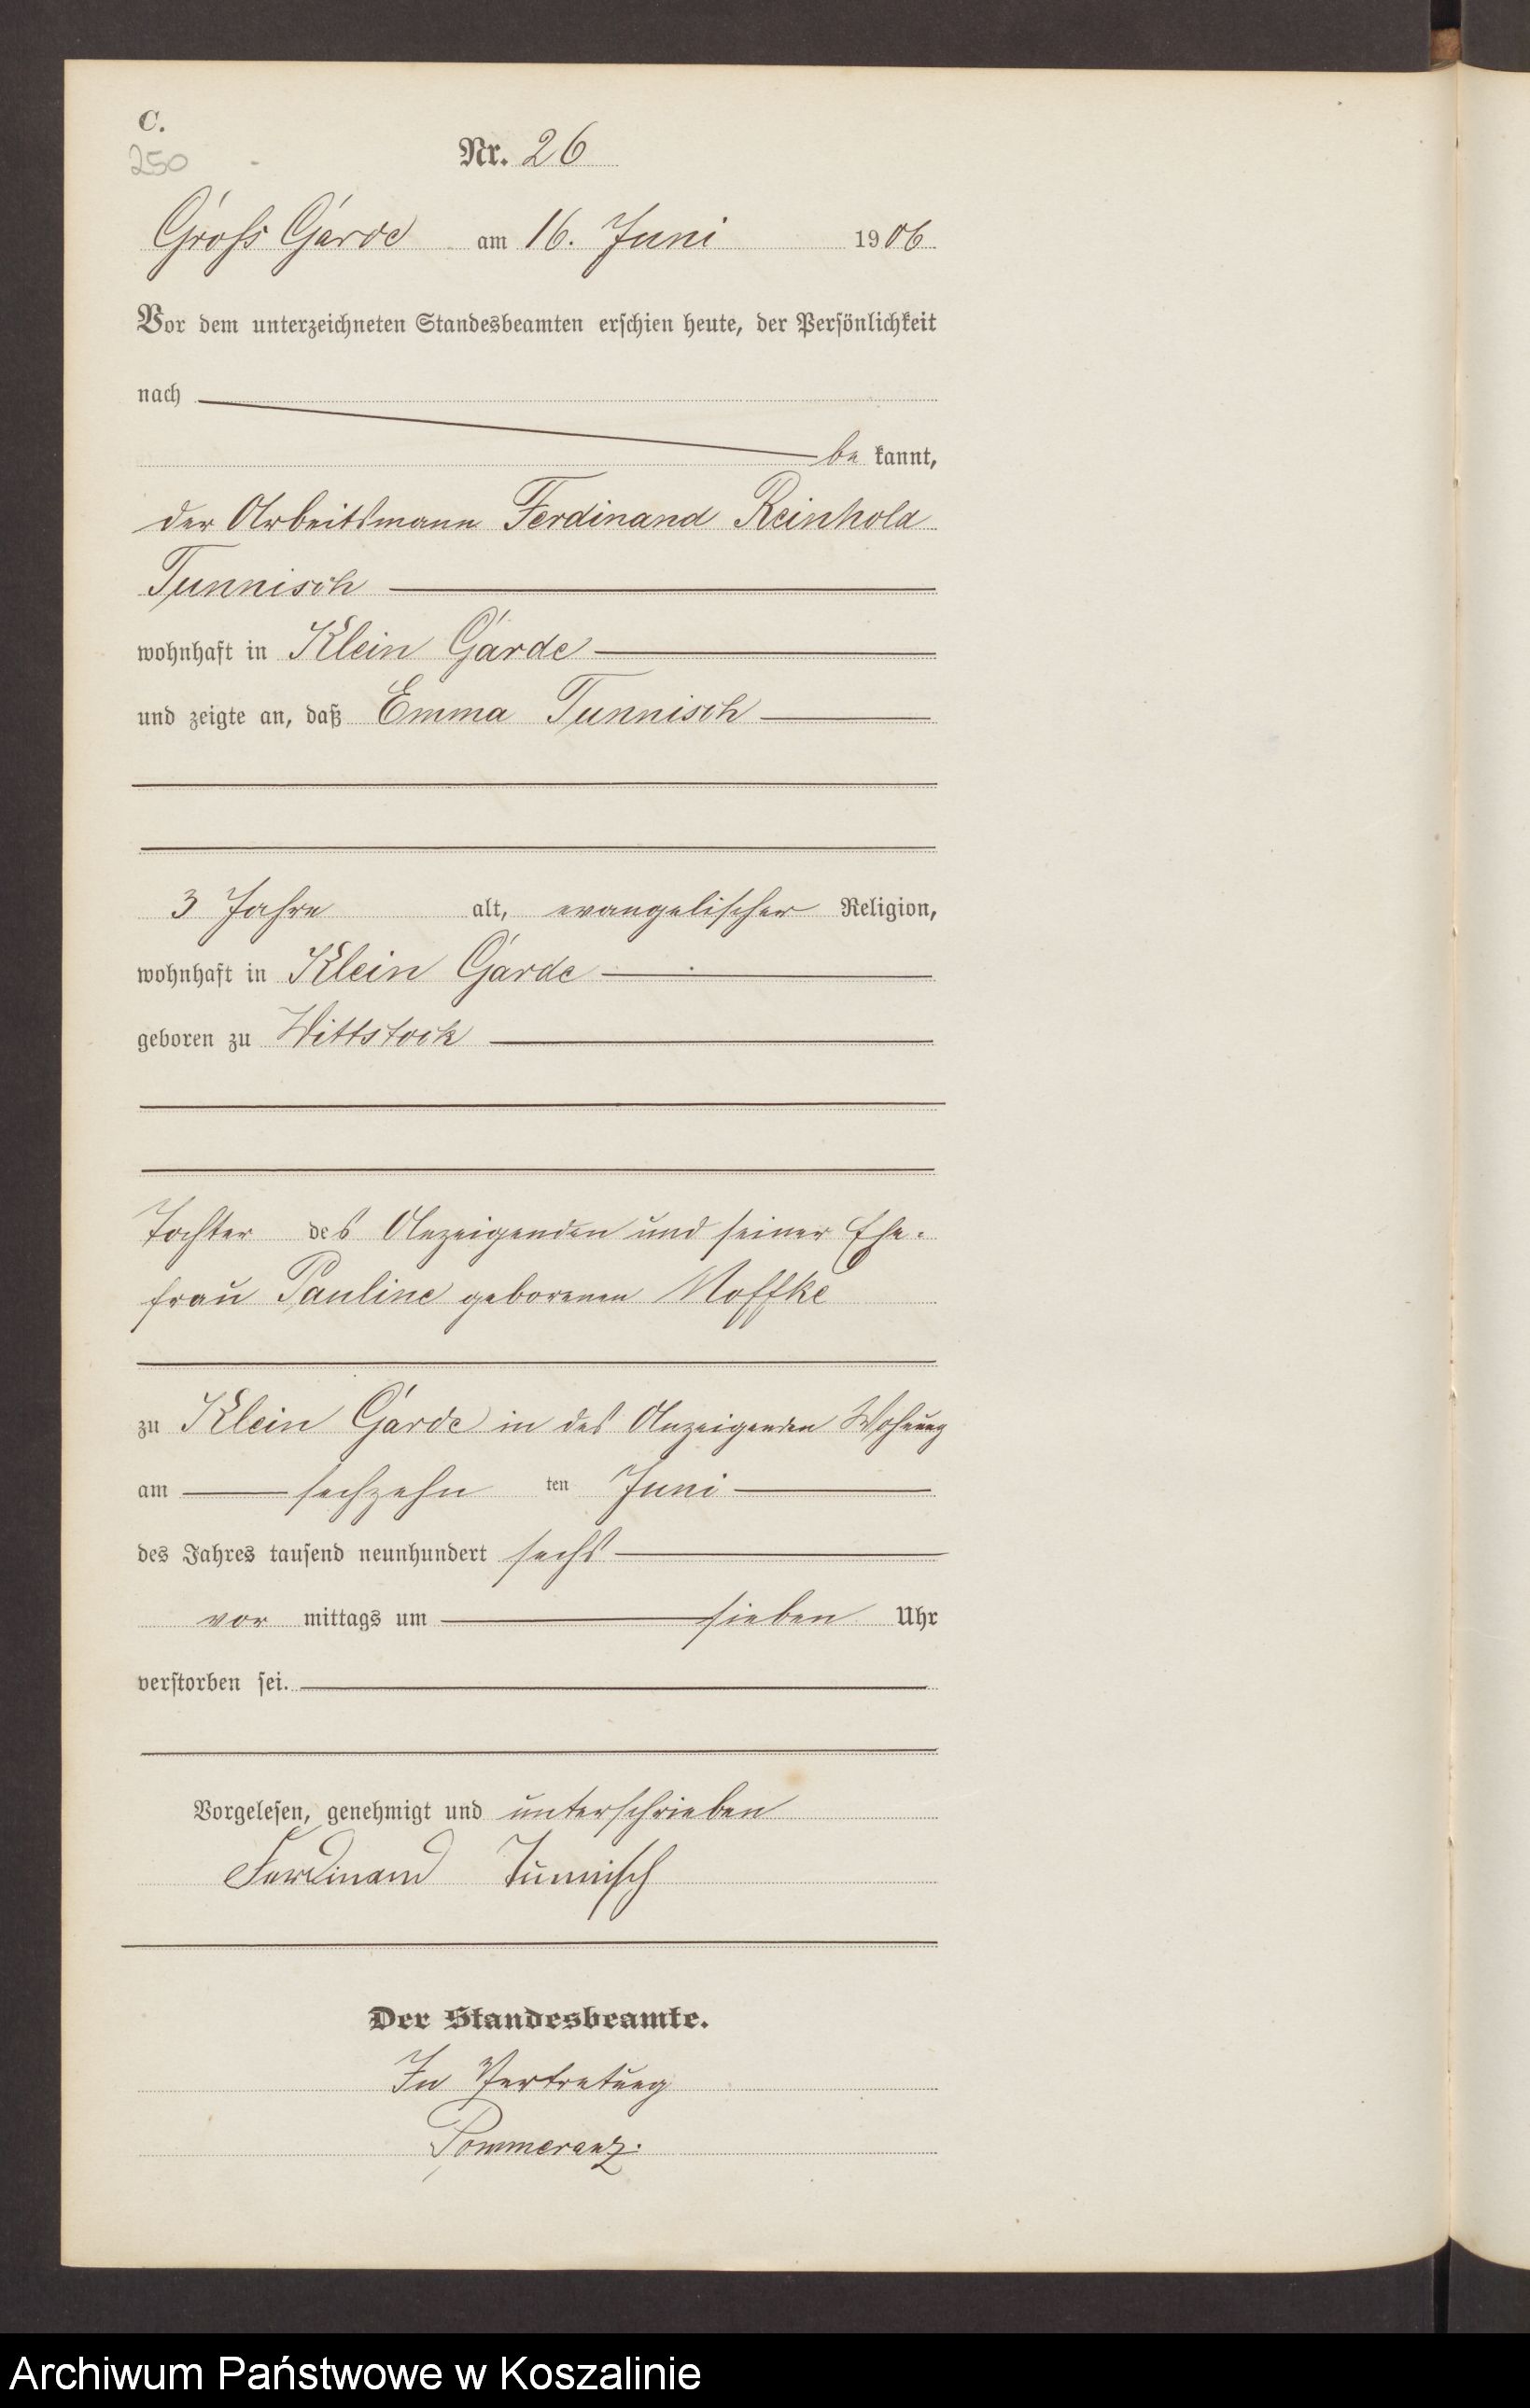 C.
250
Nr. 26
Gross Garde am 16. Juni 1906
Vor dem unterzeichneten Standesbeamten erschien heute, der Persönlichkeit
nach
be kannt,
der Arbeitsmann Ferdinand Reinhold
Tunnisch
wohnhaft in Klein Garde
und zeigte an, daß Emma Tunnisch
3 Jahre alt, evangelischer Religion,
wohnhaft in Klein Garde
geboren zu Wittstock
Tochter des Anzeigenden und seiner Ehe-
frau Pauline geborenen Noffke
zu Klein Garde in des Anzeigenden Wohnung
am sechzehn ten Juni
des Jahres tausend neunhundert sechs
vor mittags um sieben Uhr
verstorben sei.
Vorgelesen, genehmigt und unterschrieben
Ferdinand Tunnisch
Der Standesbeamte.
In Vertretung
Pommeranz.
Archiwum Państwowe w Koszalinie